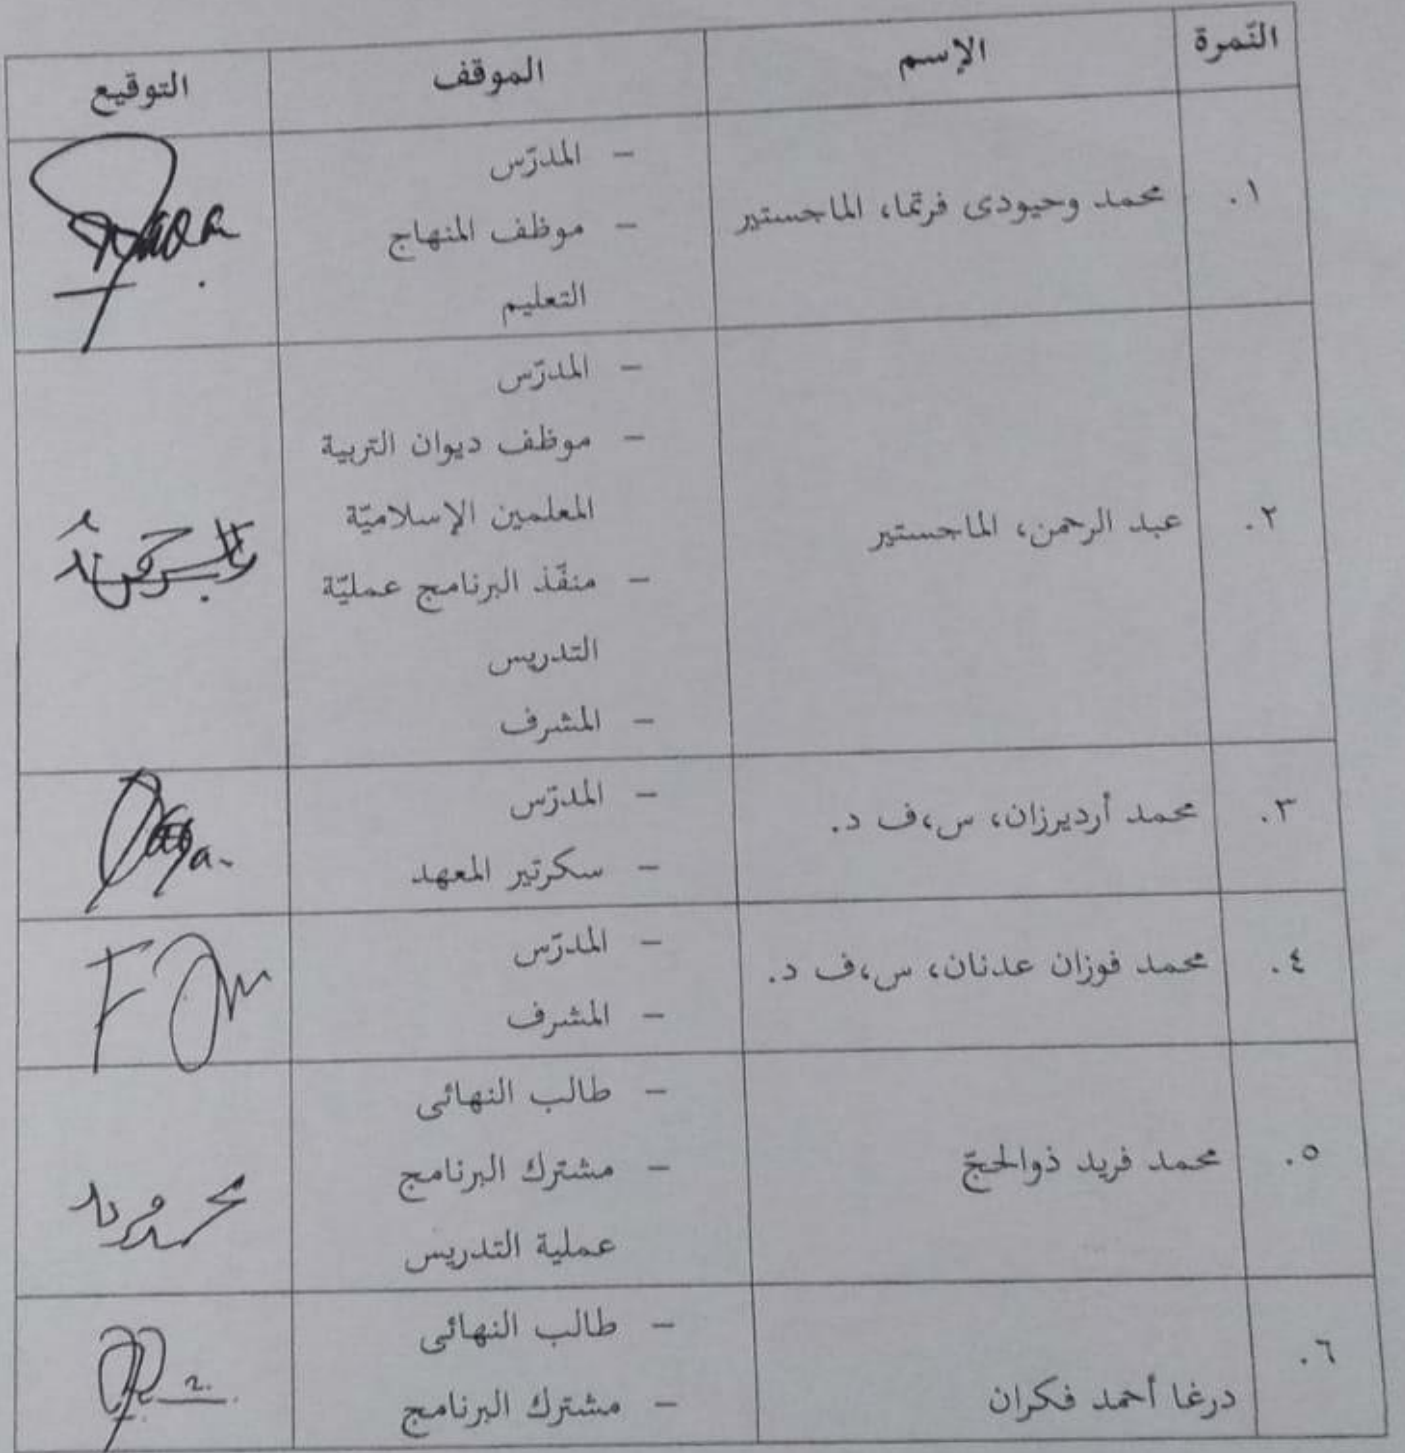 النّمرة الإسم الموقف التوقيع
١. محمد وحيودى فرتما، الماجستير
- المدرّس
- موظف المنهاج
التعليم
٢. عبد الرحمن، الماجستير
- المدرّس
- موظف ديوان التربية
المعلمين الإسلاميّة
- منفّذ البرنامج عمليّة
التدريس
- المشرف
٣. محمد أرديرزان، س،ف د.
- المدرّس
- سكرتير المعهد
٤. محمد فوزان عدنان، س،ف د.
- المدرّس
- المشرف
٥. محمد فريد ذوالحجّ
- طالب النهائى
- مشترك البرنامج
عملية التدريس
محمد فريد
٦. درغا أحمد فكران
- طالب النهائى
- مشترك البرنامج